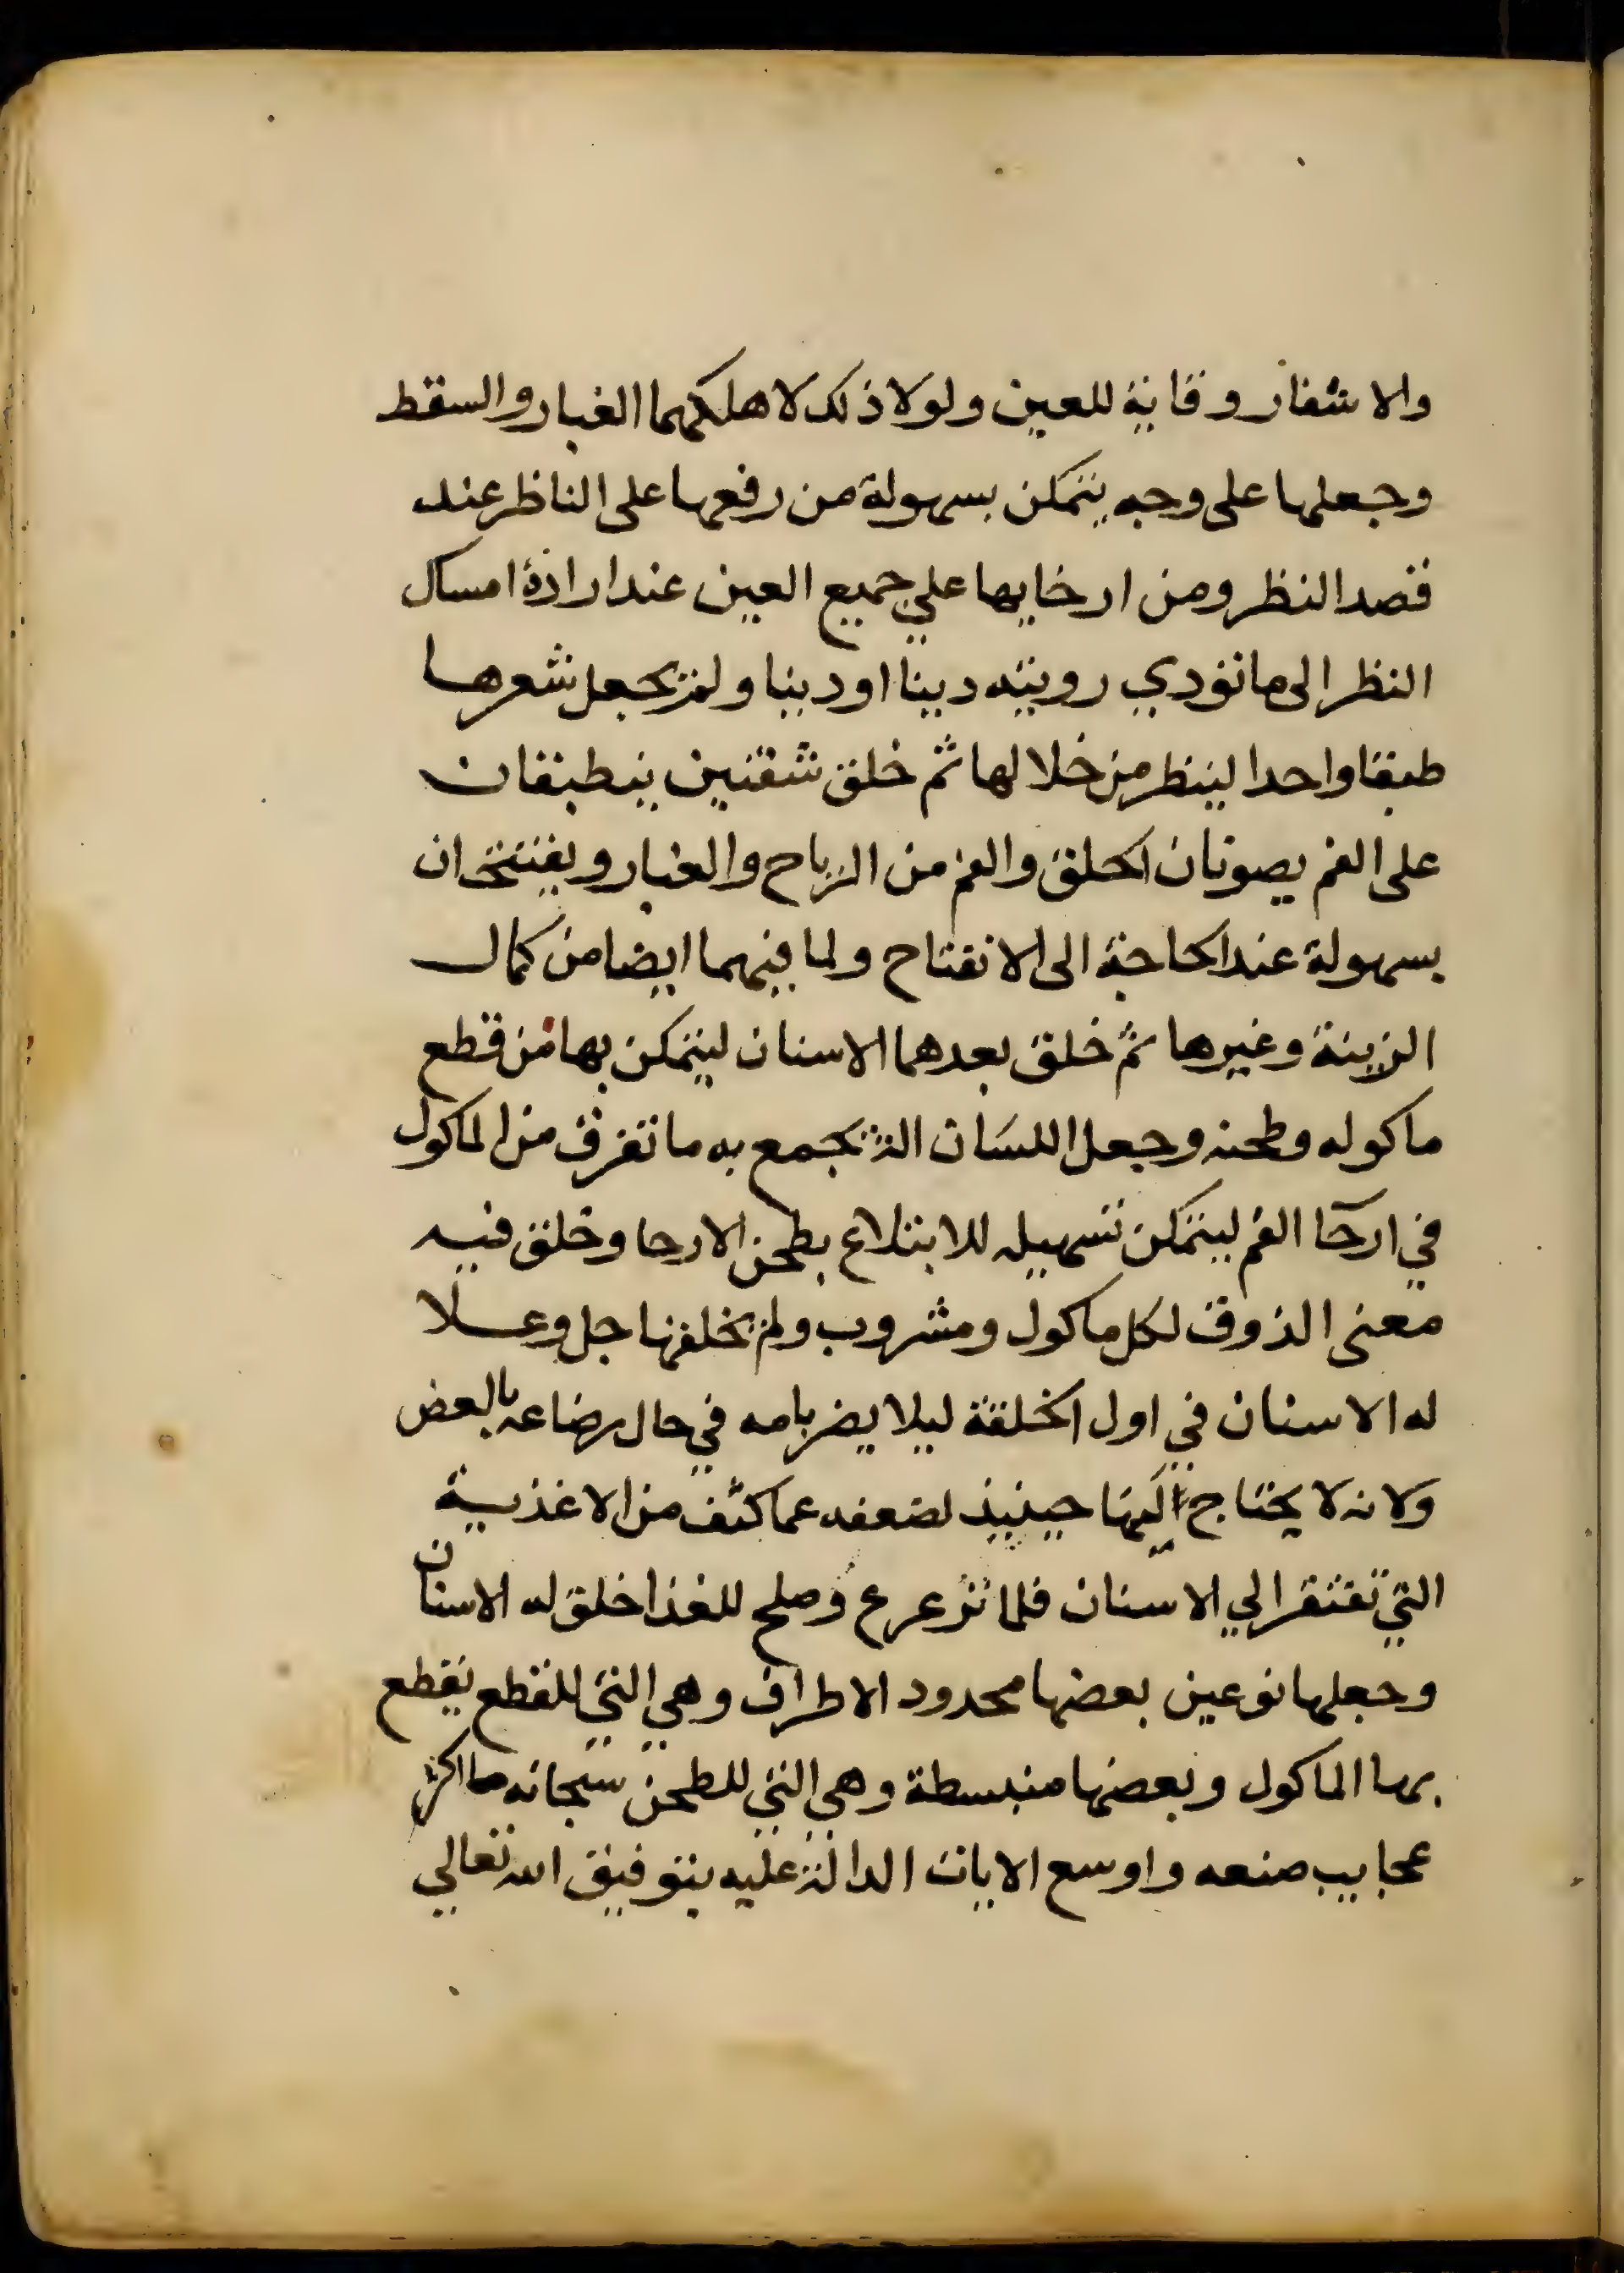 والاشفار وقاية للعين ولولا ذلك لاهلكهما الغبار والسقط
وجعلها على وجه يتمكن بسهولة من رفعها على الناظر عند
قصد النظر ومن ارخايها علي جميع العين عند ارادة امساك
النظر الى ما تؤدي رويته دينا او دنيا ولم يجعل شعرها
طبقا واحدا لينظر من خلالها ثم خلق شفتين ينطبقان
على الفم يصونان الحلق والفم من الرياح والغبار ويفتتحان
بسهولة عند الحاجة الى الانفتاح ولما فيهما ايضا من كمال
الزينة وغيرها ثم خلق بعدهما الاسنان ليتمكن بها من قطع
ماكوله وطحنه وجعل اللسان الة يجمع به ما تفرق من الماكول
في ارحا الفم ليتمكن تسهيله للابتلاع بطحن الارحا وخلق فيه
معنى الذوق لكل ماكول ومشروب ولم يخلفها جل وعلا
له الاسنان في اول الخلقة ليلا يضر بامه في حال رضاعه بالعض
ولانه لا يحتاج اليها حينيذ لضعفه عما كثف من الاغذية
التي تفتقر الي الاسنان فلما ترعرع وصلح للغذا خلق له الاسنان
وجعلها نوعين بعضها محدود الاطراف وهي التي للقطع يقطع
بها الماكول وبعضها منبسطة وهي التي للطحن سبحانه ما اكثر
عجايب صنعه واوسع الايات الدالة عليه بتوفيق الله تعالي